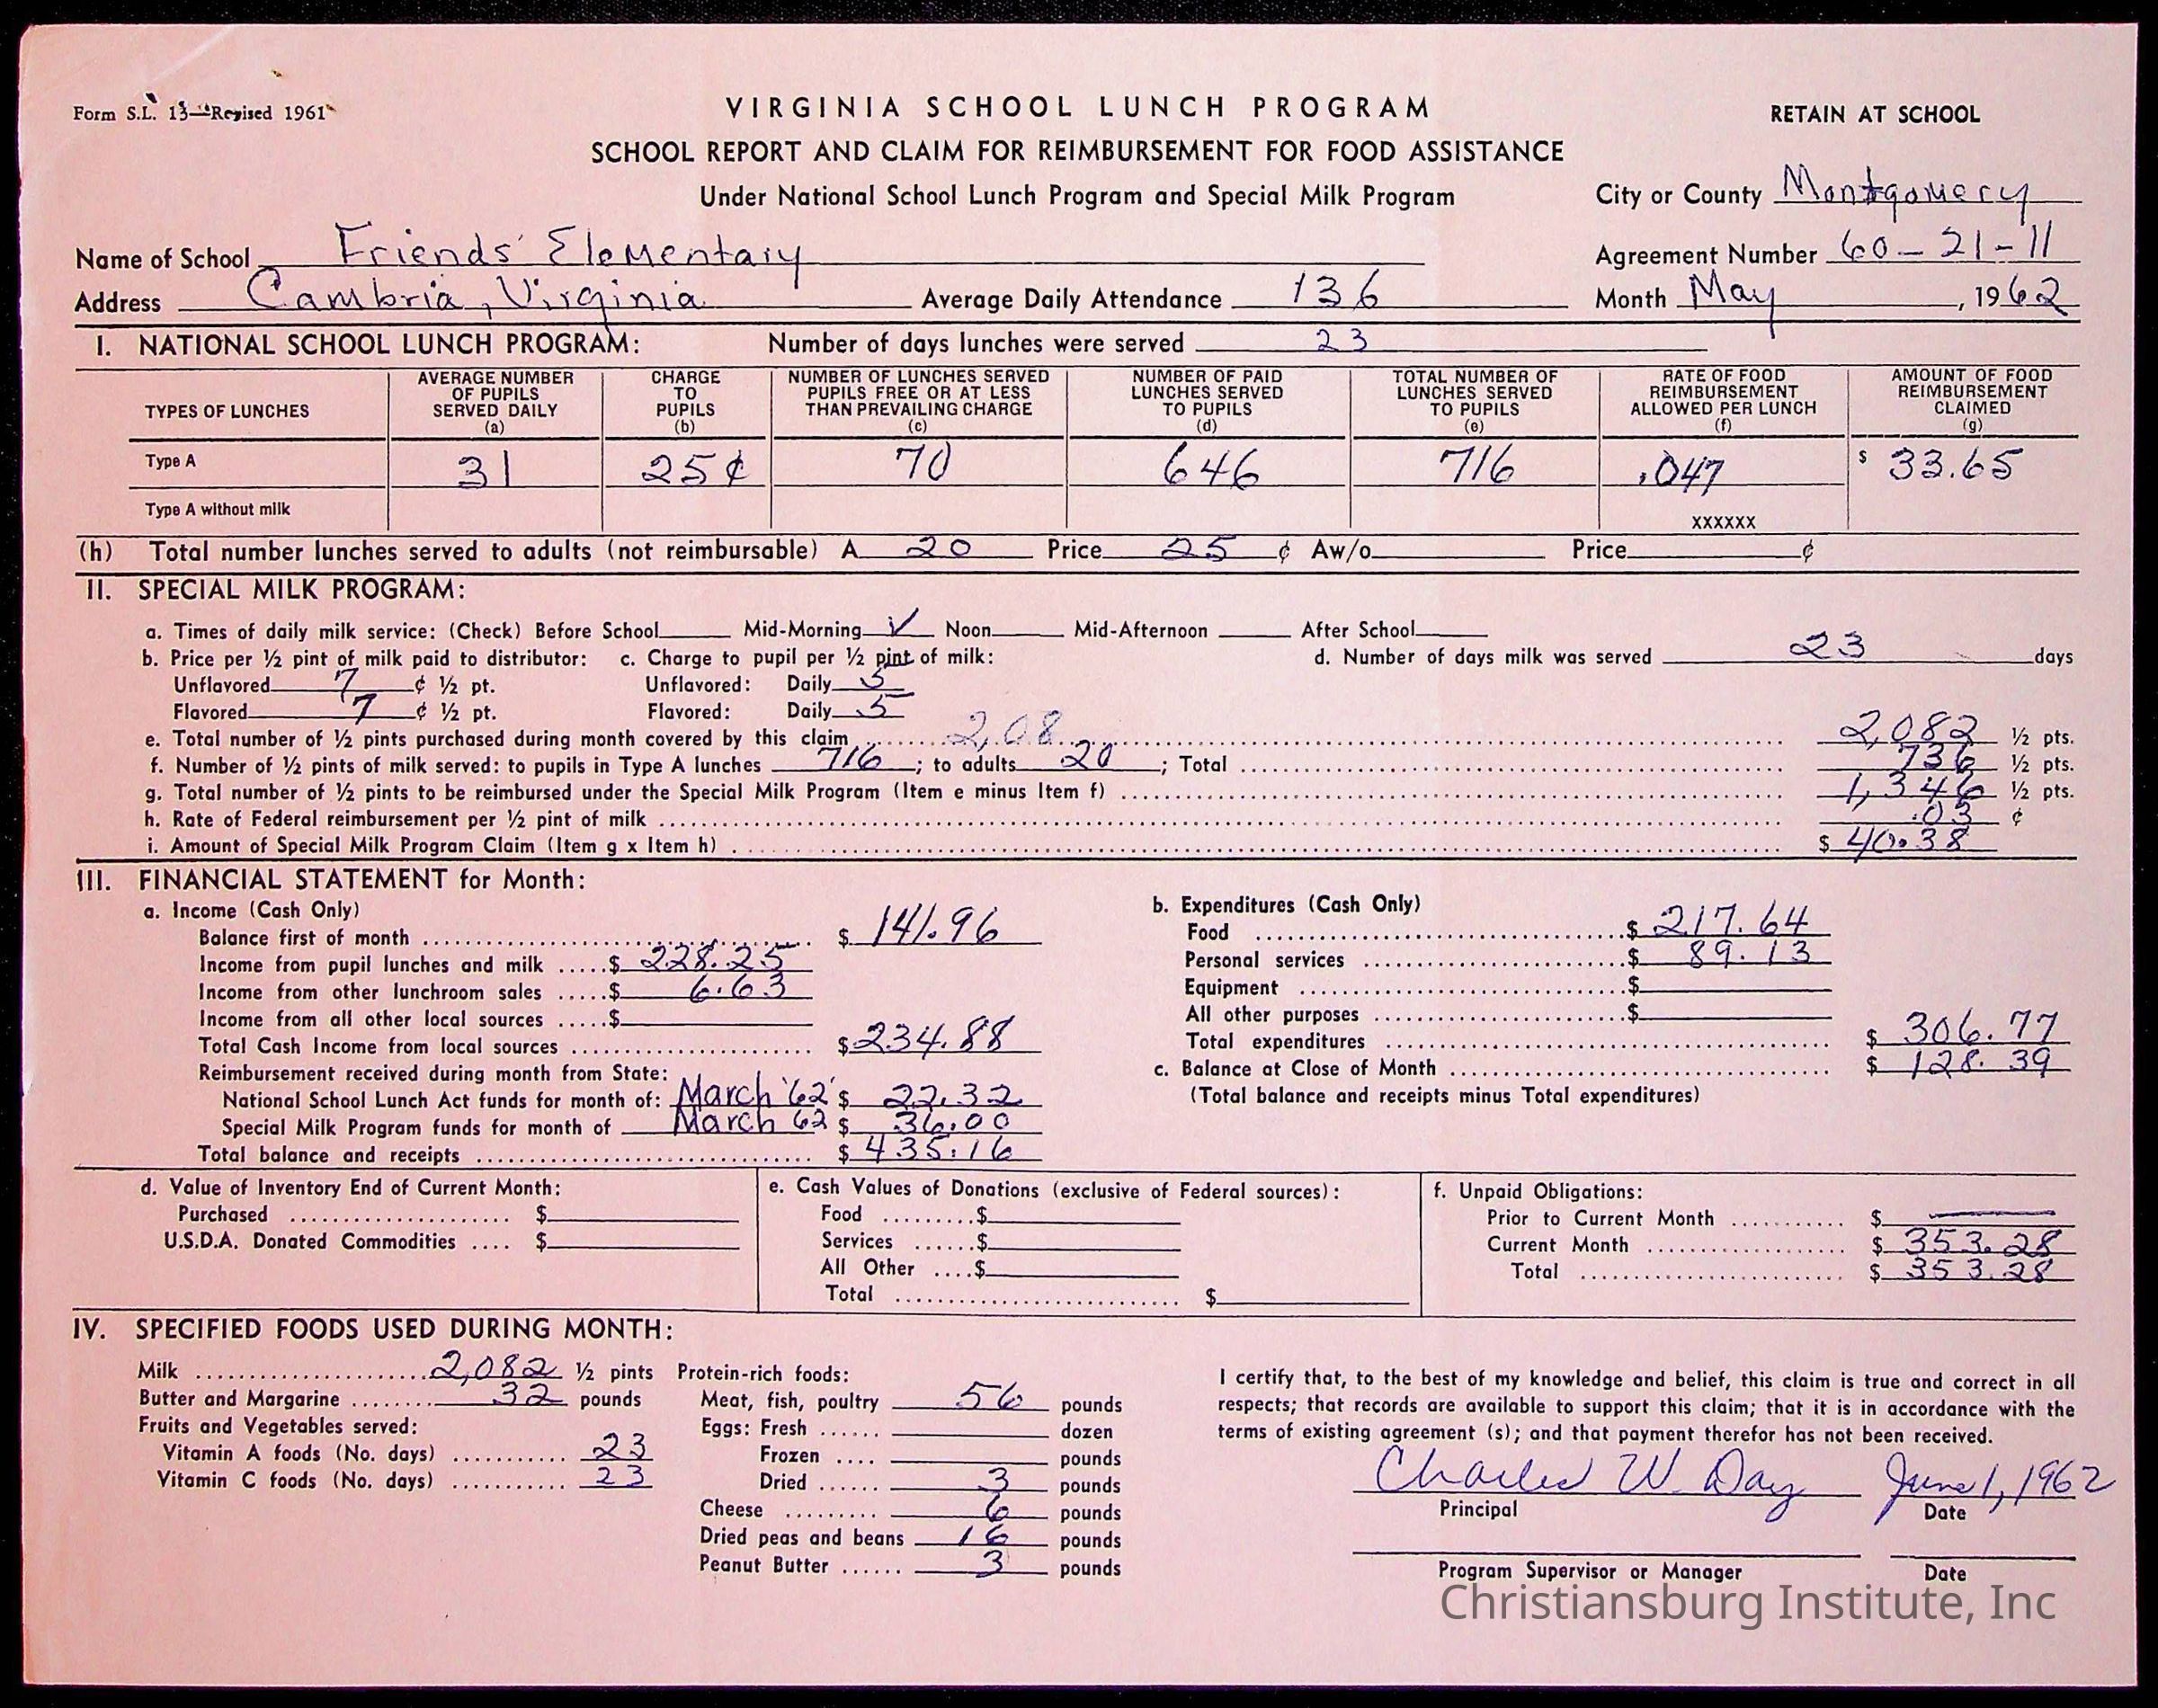 Form S.L. 13—Revised 1961
VIRGINIA SCHOOL LUNCH PROGRAM
RETAIN AT SCHOOL
SCHOOL REPORT AND CLAIM FOR REIMBURSEMENT FOR FOOD ASSISTANCE
Under National School Lunch Program and Special Milk Program
City or County Montgomery
Name of School Friends' Elementary
Agreement Number 60-21-11
Address Cambria, Virginia Average Daily Attendance 136 Month May, 1962
I. NATIONAL SCHOOL LUNCH PROGRAM: Number of days lunches were served 23
TYPES OF LUNCHES
AVERAGE NUMBER OF PUPILS SERVED DAILY (a)
CHARGE TO PUPILS (b)
NUMBER OF LUNCHES SERVED PUPILS FREE OR AT LESS THAN PREVAILING CHARGE (c)
NUMBER OF PAID LUNCHES SERVED TO PUPILS (d)
TOTAL NUMBER OF LUNCHES SERVED TO PUPILS (e)
RATE OF FOOD REIMBURSEMENT ALLOWED PER LUNCH (f)
AMOUNT OF FOOD REIMBURSEMENT CLAIMED (g)
Type A 31 25¢ 70 646 716 .047 $ 33.65
Type A without milk XXXXXX
(h) Total number lunches served to adults (not reimbursable) A 20 Price 25 ¢ Aw/o Price ¢
II. SPECIAL MILK PROGRAM:
a. Times of daily milk service: (Check) Before School Mid-Morning ✓ Noon Mid-Afternoon After School
b. Price per ½ pint of milk paid to distributor: c. Charge to pupil per ½ pint of milk: d. Number of days milk was served 23 days
Unflavored 7 ¢ ½ pt. Unflavored: Daily 5
Flavored 7 ¢ ½ pt. Flavored: Daily 5
e. Total number of ½ pints purchased during month covered by this claim 2,08 2,082 ½ pts.
f. Number of ½ pints of milk served: to pupils in Type A lunches 716; to adults 20; Total 736 ½ pts.
g. Total number of ½ pints to be reimbursed under the Special Milk Program (Item e minus Item f) 1,346 ½ pts.
h. Rate of Federal reimbursement per ½ pint of milk .03 ¢
i. Amount of Special Milk Program Claim (Item g x Item h) $ 40.38
III. FINANCIAL STATEMENT for Month:
a. Income (Cash Only)
Balance first of month $ 141.96
Income from pupil lunches and milk $ 228.25
Income from other lunchroom sales $ 6.63
Income from all other local sources $
Total Cash Income from local sources $ 234.88
Reimbursement received during month from State:
National School Lunch Act funds for month of: March '62 $ 22.32
Special Milk Program funds for month of March 62 $ 36.00
Total balance and receipts $ 435.16
b. Expenditures (Cash Only)
Food $ 217.64
Personal services $ 89.13
Equipment $
All other purposes $
Total expenditures $ 306.77
c. Balance at Close of Month $ 128.39
(Total balance and receipts minus Total expenditures)
d. Value of Inventory End of Current Month:
Purchased $
U.S.D.A. Donated Commodities $
e. Cash Values of Donations (exclusive of Federal sources):
Food $
Services $
All Other $
Total $
f. Unpaid Obligations:
Prior to Current Month $ —
Current Month $ 353.28
Total $ 353.28
IV. SPECIFIED FOODS USED DURING MONTH:
Milk 2,082 ½ pints
Butter and Margarine 32 pounds
Fruits and Vegetables served:
Vitamin A foods (No. days) 23
Vitamin C foods (No. days) 23
Protein-rich foods:
Meat, fish, poultry 56 pounds
Eggs: Fresh dozen
Frozen pounds
Dried 3 pounds
Cheese 6 pounds
Dried peas and beans 16 pounds
Peanut Butter 3 pounds
I certify that, to the best of my knowledge and belief, this claim is true and correct in all
respects; that records are available to support this claim; that it is in accordance with the
terms of existing agreement (s); and that payment therefor has not been received.
Charles W. Day June 1, 1962
Principal Date
Program Supervisor or Manager Date
Christiansburg Institute, Inc